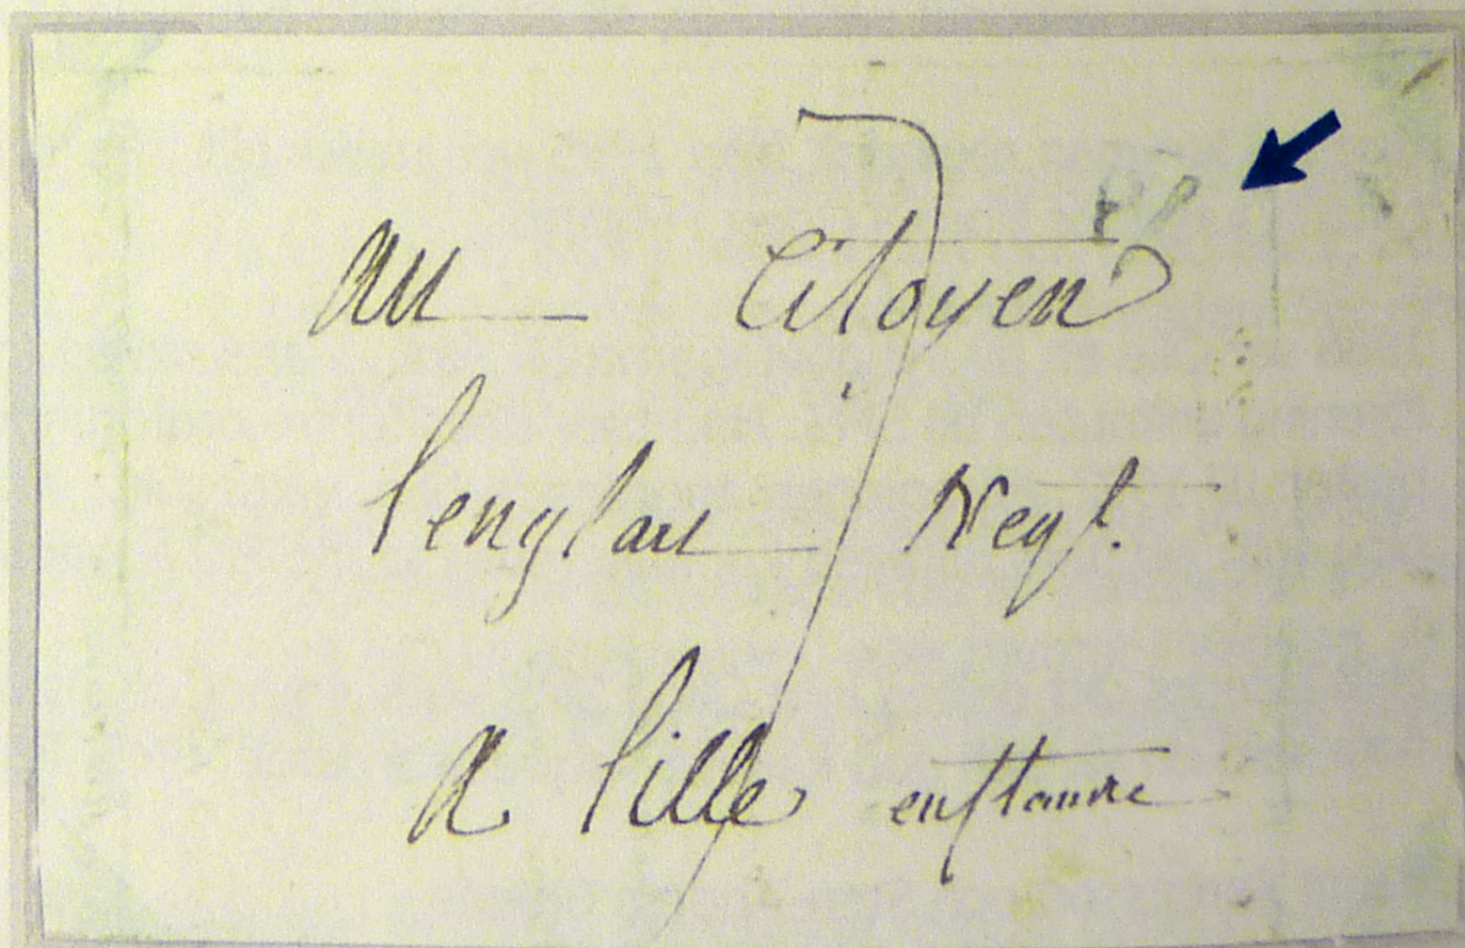 au Citoyen
lenglart Negt.
a lille en flandre